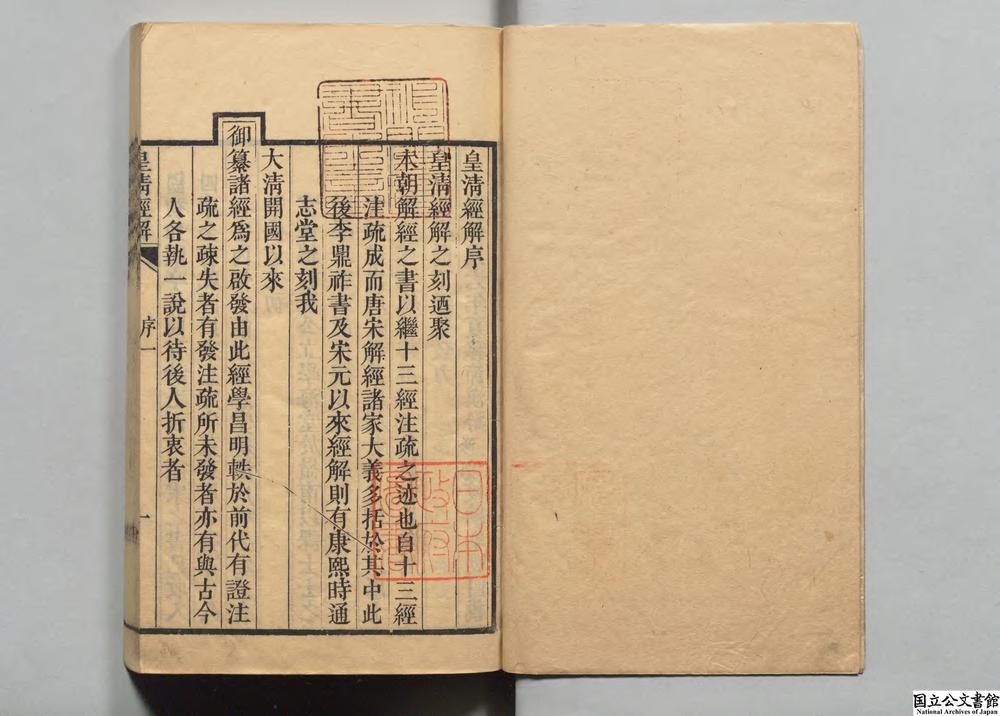 皇清經解序
皇清經解之刻迺聚
本朝解經之書以繼十三經注疏之迹也自十三經
注疏成而唐宋解經諸家大義多括於其中此
後李鼎祚書及宋元以來經解則有康熙時通
志堂之刻我
大清開國以來
御纂諸經爲之啟發由此經學昌明軼於前代有證注
疏之疎失者有發注疏所未發者亦有與古今
人各執一說以待後人折衷者
皇清經解
序一
一
日本
政府
圖書
国立公文書館
National Archives of Japan